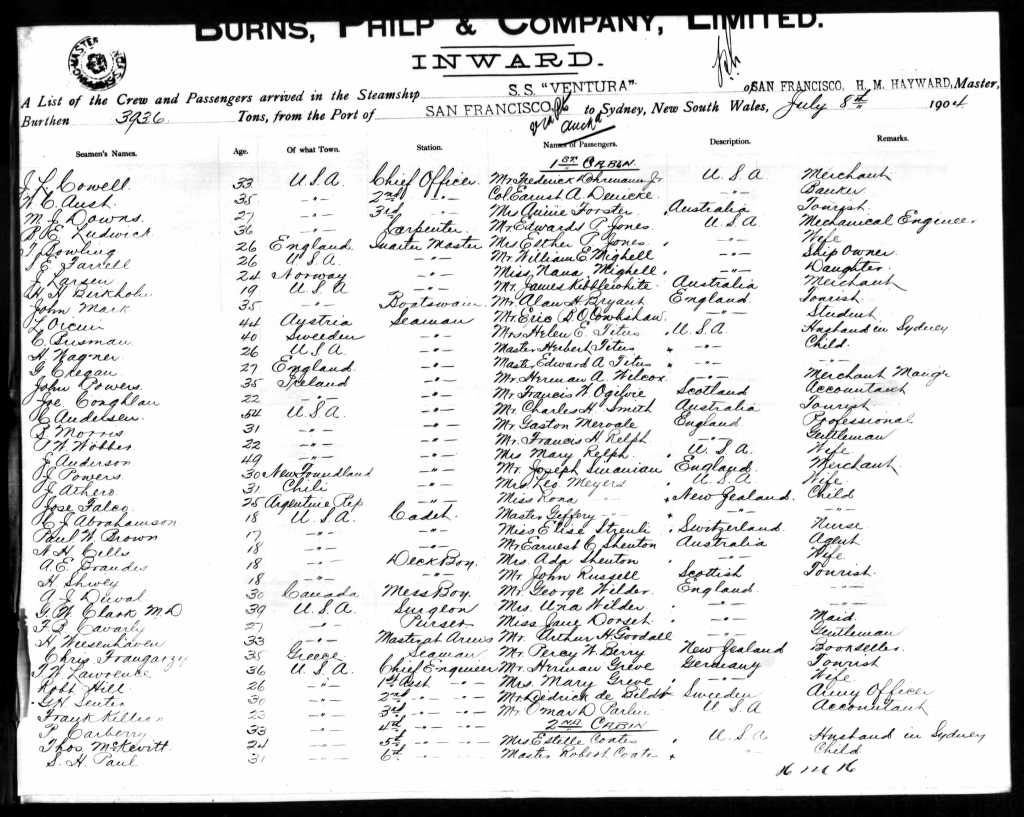 BURNS, PHILP & COMPANY, LIMITED.
INWARD.
A List of the Crew and Passengers arrived in the Steamship S. S. "VENTURA" of SAN FRANCISCO, H. M. HAYWARD, Master,
Burthen 3936 Tons, from the Port of SAN FRANCISCO to Sydney, New South Wales, July 8th 1904
Seamen's Names. Age. Of what Town. Station. Names of Passengers. Description. Remarks.
1st CABIN
J. L. Cowell 33 U.S.A. Chief Officer Mr Frederick Rohrmann Jr U.S.A Merchant
35 -"- 2nd -"- Col Earnst A. Denicke -"- Banker
M. J. Downs 27 -"- 3rd -"- Mrs Annie Forster Australia Tourist
Ludwick 36 -"- Carpenter Mr Edwards P. Jones U.S.A Mechanical Engineer
T. Dowling 26 England Quarter Master Mrs Esther P. Jones -"- Wife
T. E. Farrell 26 U.S.A. -"- Mr William E. Mighell -"- Ship Owner
J. Larsen 24 Norway -"- Miss Nana Mighell -"- Daughter
19 U.S.A -"- Mr James Kibblewhite Australia Merchant
John Mark 35 -"- Boatswain Mr Alan H. Bryant England Tourist
44 Austria Seaman Mr Eric -"- Student
40 Sweeden -"- Mrs Helen E. Titus U.S.A Husband in Sydney
H. Wagner 26 U.S.A. -"- Master Herbert Titus -"- Child
27 England -"- Master Edward A Titus -"- -"-
John Powers 35 Ireland -"- Mr Herman A. Wilcox -"- Merchant Mang'r
Joe Coughlan 22 -"- -"- Mr Francis W. Ogilvie Scotland Accountant
C. Andersen 54 U.S.A. -"- Mr Charles H. Smith Australia Tourist
S. Morris 31 -"- -"- Mr Gaston Mervale England Professional
22 -"- -"- Mr Francis H Relph -"- Gentleman
J. Anderson 49 -"- -"- Mrs Mary Relph U.S.A. Wife
J. Powers 30 New Foundland -"- Mr Joseph England Merchant
31 Chili -"- Mrs Leo Meyers U.S.A Wife
25 Argentine Rep -"- Miss Rona New Zealand Child
J. Abrahamson 18 U.S.A. Cadet Master Geffery -"- -"-
Paul W. Brown 17 -"- -"- Miss Elise Streuli Switzerland Nurse
18 -"- -"- Mr Earnest C. Shenton Australia Agent
A. E. Brandes 18 -"- Deck Boy Mrs Ada Shenton -"- Wife
H. 18 -"- -"- Mr John Russell Scottish Tourist
A. J. Duval 30 Canada Mess Boy Mr George Wilder England -"-
G. W. Clark M.D 39 U.S.A. Surgeon Mrs Una Wilder -"- -"-
27 -"- Purser Miss Jane Dorset -"- Maid
H. Wiesenhaven 33 -"- Master at Arms Mr Arthur H. Goodall -"- Gentleman
Chris 35 Greece Seaman Mr Percy W. Berry New Zealand Bookseller
T. W. Lawrence 36 U.S.A. Chief Engineer Mr Herman Greve Germany Tourist
Robt Hill 26 -"- 1st Asst -"- Mrs Mary Greve -"- Wife
30 -"- 2nd -"- -"- Mr Didrick de Bildt Sweeden Army Officer
Frank 23 -"- 3rd -"- -"- Mr Omar D. U.S.A Accountant
P. Carberry 33 -"- 4th -"- -"- 2nd CABIN
Thos. McKevitt 24 -"- 5th -"- -"- Mrs Estelle Coates U.S.A Husband in Sydney
S. H. Paul 31 -"- 6th -"- -"- Master Robert Coates -"- Child